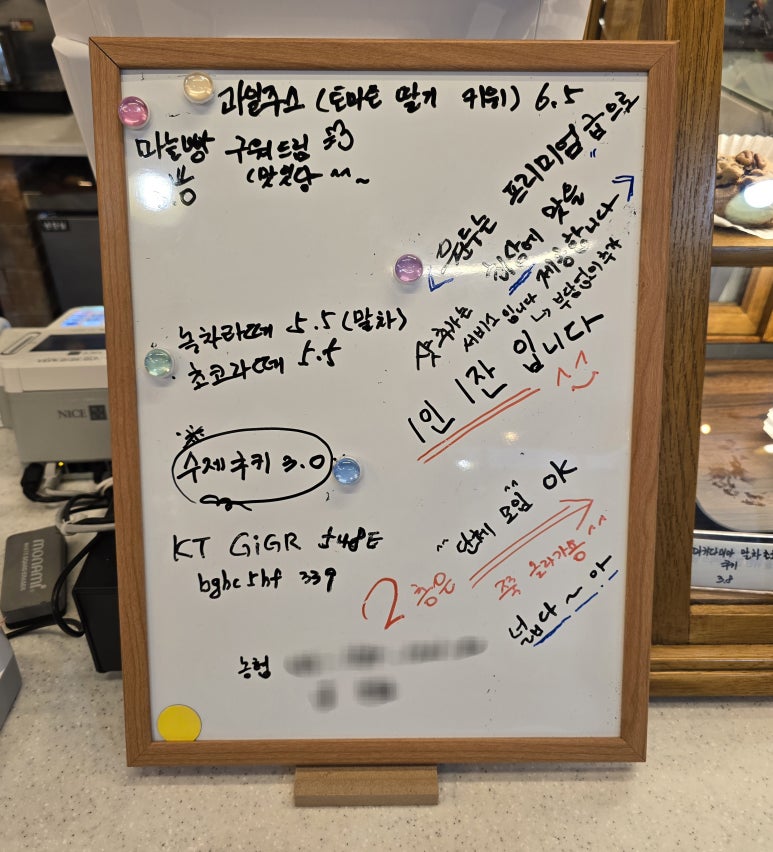 과일주스 (토마토 딸기 키위) 6.5
마늘빵 구워드림 3
(맛있당 ^^~
원두는 프리미엄급으로
최상에 맛을
제공합니다
샷 추가는
서비스 입니다 → 부담없이 추가
1인 1잔 입니다 ^^
녹차라떼 5.5 (말차)
초코라떼 5.5
수제쿠키 3.0
단체 모임 OK
2층은 쭉 올라가용 ^^
넓다~아
KT GiGA
bghc5hf 339
농협
NICE
monami
쿠키
3.8